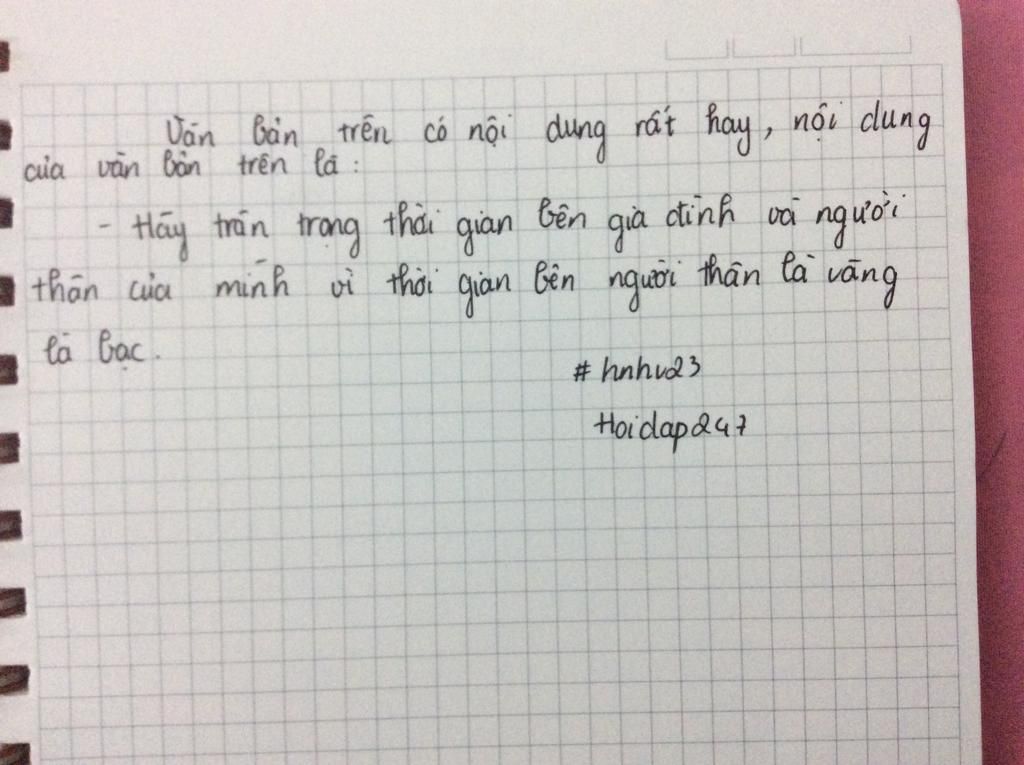 Văn bản trên có nội dung rất hay, nội dung
của văn bản trên là:
- Hãy trân trọng thời gian bên gia đình và người
thân của mình vì thời gian bên người thân là vàng
là bạc.
# hnhv23
Hoidap247